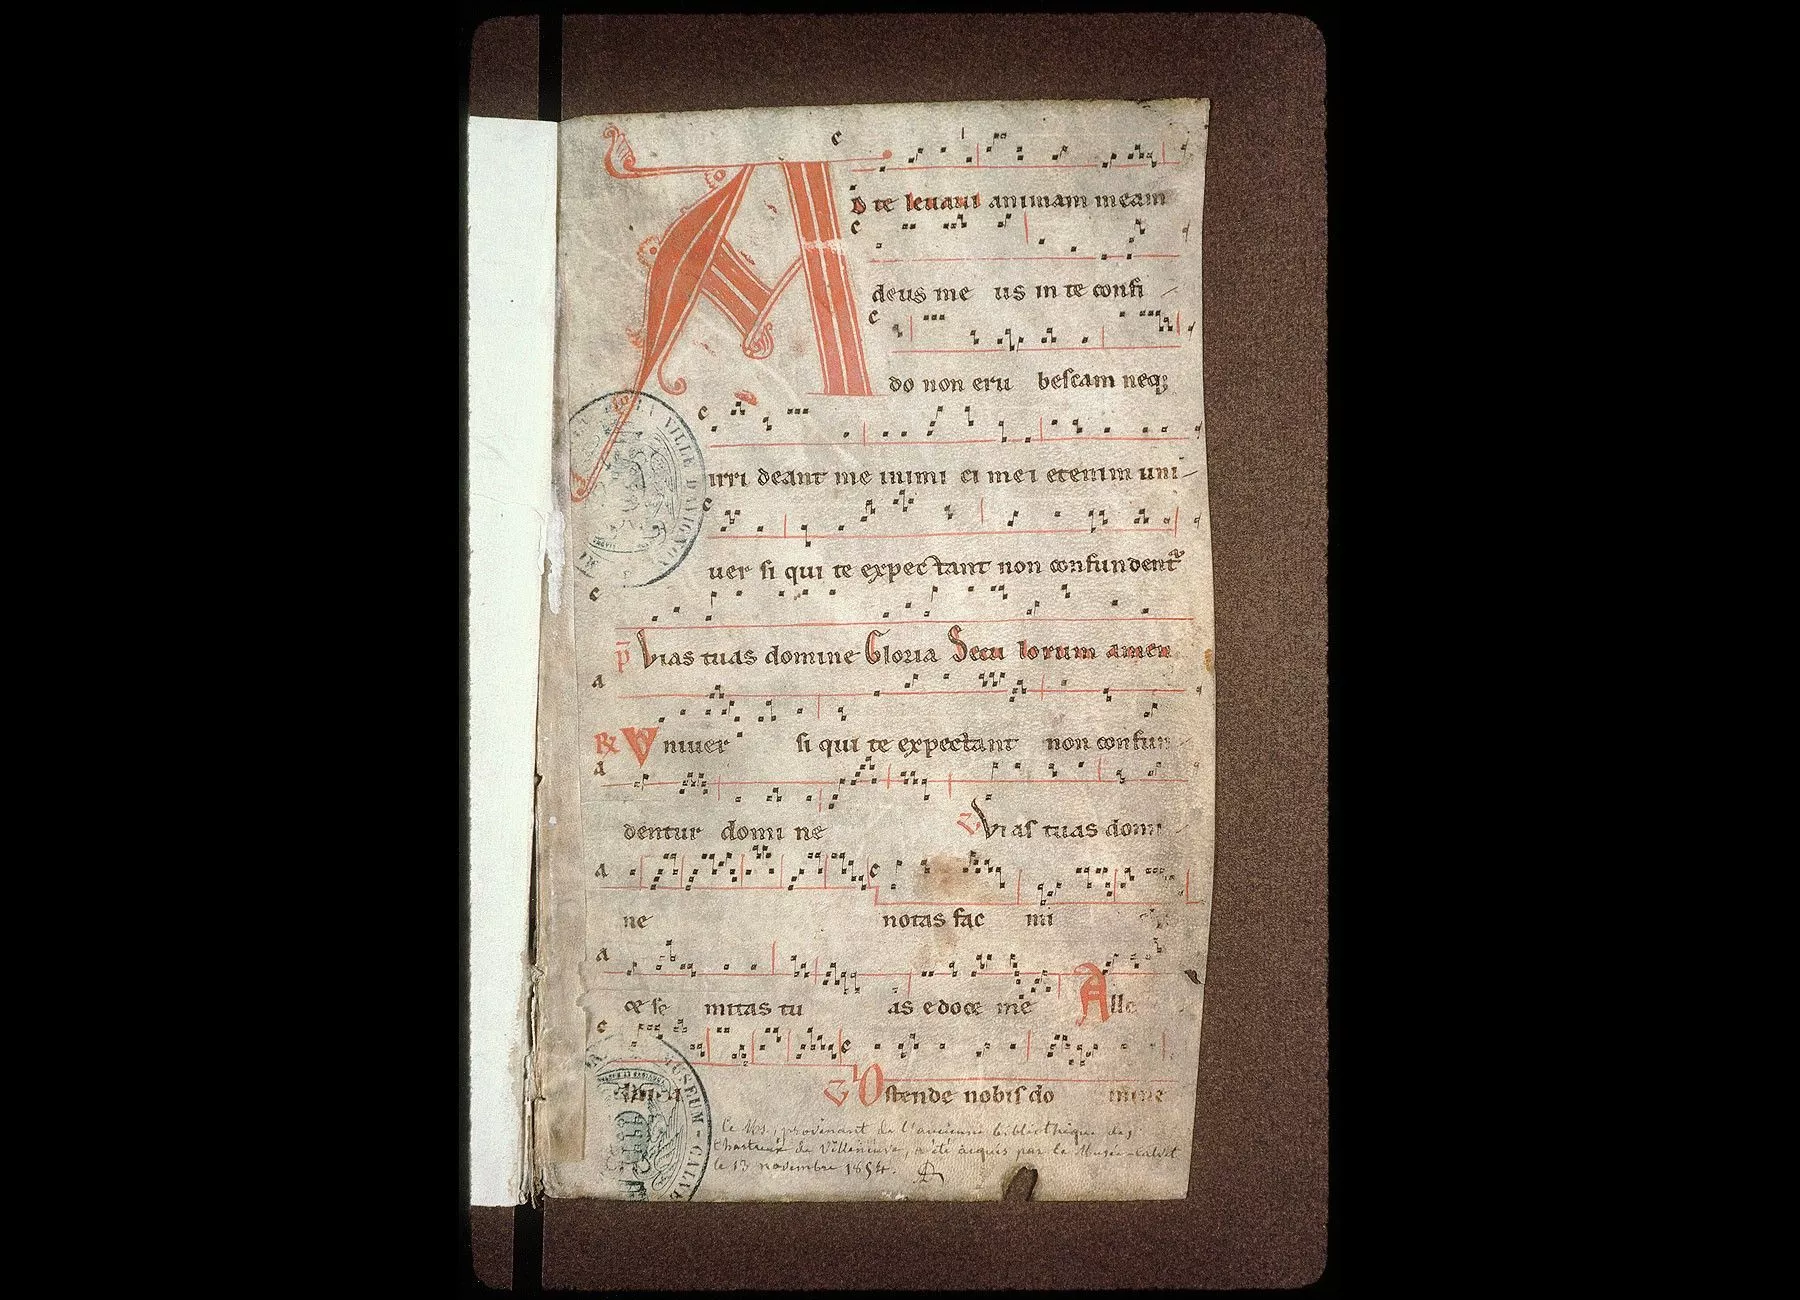 A
d te leuaui animam meam
deus me us in te confi
do non eru bescam neq;
irri deant me inimi ci mei etenim uni-
uer si qui te expec tant non confundent᷑
p̄ Vias tuas domine Gloria Secu lorum amen
℟ Vniuer si qui te expectant non confun-
dentur domi ne Vias tuas domi
ne notas fac mi
ce se mitas tu as edoce me Alle
Ostende nobis do mine
Ce Ms, provenant de l'ancienne bibliothèque des
Chartreux de Villeneuve, a été acquis par le Musée-Calvet
le 13 novembre 1854.
LA VILLE D'AVIGNON
MUSEUM-CALVE